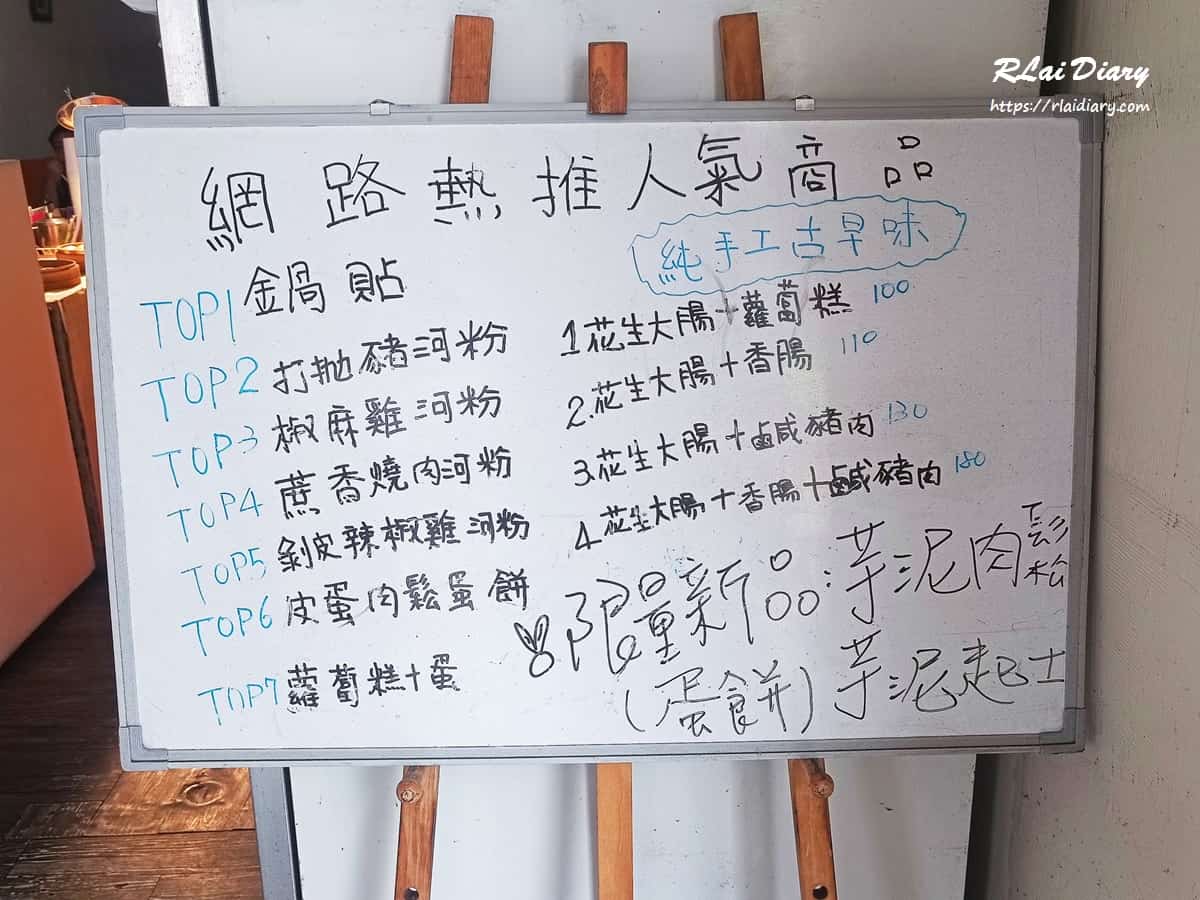 RLai Diary
https://rlaidiary.com
網路熱推人氣商品
TOP1 鍋貼
TOP2 打拋豬河粉
TOP3 椒麻雞河粉
TOP4 蔗香燒肉河粉
TOP5 剝皮辣椒雞河粉
TOP6 皮蛋肉鬆蛋餅
TOP7 蘿蔔糕+蛋
純手工古早味
1.花生大腸+蘿蔔糕 100
2.花生大腸+香腸 110
3.花生大腸+鹹豬肉 130
4.花生大腸+香腸+鹹豬肉 180
限量新品:芋泥肉鬆
(蛋餅) 芋泥起士